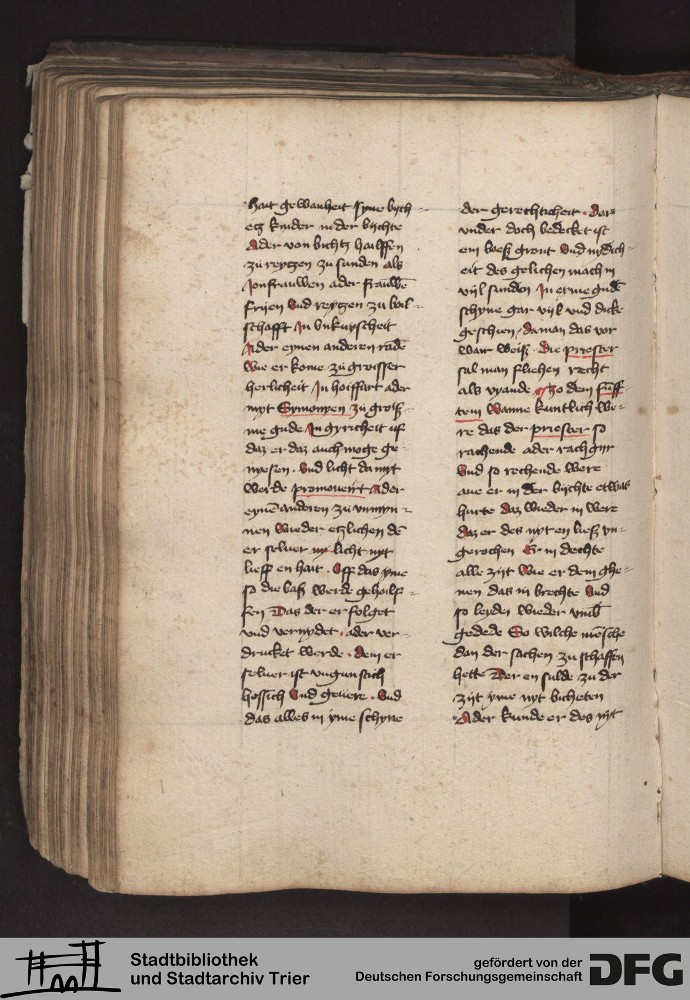 hait gewanheit syne bych-
etz kynder in der bychte
Ader von bichtz hailffen
zu reytzen zu sunden als
Jonfrauwen ader frauwē
frijen Vnd reytzen zu bol-
schafft In vnkuyscheit
Ader eynen anderen rade
wie er kome zu groisser
herlicheit In hoiffart ader
myt Symonyen zu groiß-
me gude In gyricheit uf
daz er daz auch moge ge-
nyesen. Vnd licht da myt
werde promoueirt Ader
eynē anderen zu vnmyn-
nen wieder etzlichen dē
er seluer licht nyt
lieff en hait. Off das yme
so die baß werde geholf-
fen Das der er folget
vnd vermydet. ader ver-
drucket werde. dem er
seluer ist vngunstich
hessich Vnd geuere. Vnd
das alles in yme schyne
der gerechticheit. Dar
vnder doch bedecket ist
ein boeß gront Vnd nydich-
eit des gelichen mach in
vijl sunden In eyme gudē
schyne gar vijl vnd dicke
geschien. da man das vor
wair weiß. Die priester
sal man fliehen recht
als vyande. Zo dem funff-
tem Wanne kuntlich we-
re das der priester so
rachende ader rachgyr
Vnd so rechende were
ane er in der bychte etwas
hurte daz wieder in were
daz er des nyt en ließ vn-
gerochen Er in dechte
alle zijt wie er dem ghe-
nen das in brechte Vnd
so leyden wieder vmb
gedede So wilche mēsche
dan der sachen zu schaffen
hette Der en sulde zu der
zijt yme nyt bicheten
Ader kunde er des nyt
Stadtbibliothek
und Stadtarchiv Trier
gefördert von der
Deutschen Forschungsgemeinschaft
DFG